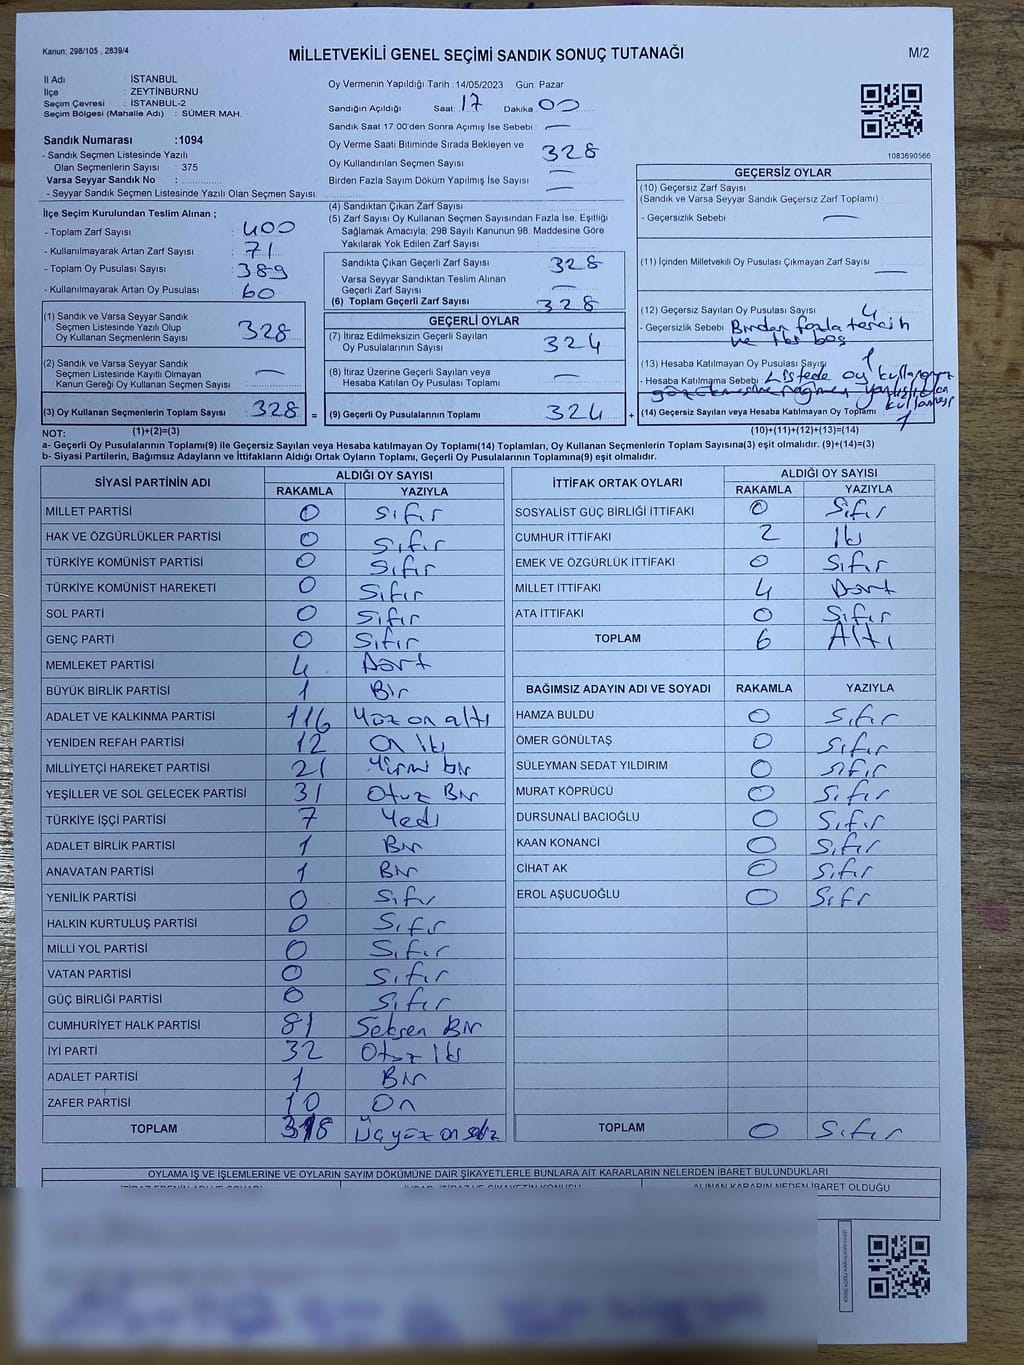 Kanun; 298/105 , 2839/4
MİLLETVEKİLİ GENEL SEÇİMİ SANDIK SONUÇ TUTANAĞI
M/2
İl Adı : İSTANBUL
İlçe : ZEYTİNBURNU
Seçim Çevresi : İSTANBUL-2
Seçim Bölgesi (Mahalle Adı) : SÜMER MAH.
Sandık Numarası :1094
- Sandık Seçmen Listesinde Yazılı
Olan Seçmenlerin Sayısı : 375
Varsa Seyyar Sandık No :
- Seyyar Sandık Seçmen Listesinde Yazılı Olan Seçmen Sayısı:
Oy Vermenin Yapıldığı Tarih 14/05/2023 Gün Pazar
Sandığın Açıldığı Saat: 17 Dakika 00
Sandık Saat 17:00'den Sonra Açımış İse Sebebi —
Oy Verme Saati Bitiminde Sırada Bekleyen ve
Oy Kullandırılan Seçmen Sayısı 328
Birden Fazla Sayım Döküm Yapılmış İse Sayısı —
1083690566
İlçe Seçim Kurulundan Teslim Alınan ;
- Toplam Zarf Sayısı : 400
- Kullanılmayarak Artan Zarf Sayısı : 71
- Toplam Oy Pusulası Sayısı : 389
- Kullanılmayarak Artan Oy Pusulası : 60
(1) Sandık ve Varsa Seyyar Sandık
Seçmen Listesinde Yazılı Olup
Oy Kullanan Seçmenlerin Sayısı : 328
(2) Sandık ve Varsa Seyyar Sandık
Seçmen Listesinde Kayıtlı Olmayan
Kanun Gereği Oy Kullanan Seçmen Sayısı : —
(3) Oy Kullanan Seçmenlerin Toplam Sayısı : 328 =
(1)+(2)=(3)
(4) Sandıktan Çıkan Zarf Sayısı : —
(5) Zarf Sayısı Oy Kullanan Seçmen Sayısından Fazla İse, Eşitliği
Sağlamak Amacıyla; 298 Sayılı Kanunun 98. Maddesine Göre
Yakılarak Yok Edilen Zarf Sayısı :
Sandıkta Çıkan Geçerli Zarf Sayısı 328
Varsa Seyyar Sandıktan Teslim Alınan
Geçerli Zarf Sayısı : —
(6) Toplam Geçerli Zarf Sayısı 328
GEÇERLİ OYLAR
(7) İtiraz Edilmeksizin Geçerli Sayılan
Oy Pusulalarının Sayısı 324
(8) İtiraz Üzerine Geçerli Sayılan veya
Hesaba Katılan Oy Pusulası Toplamı : —
(9) Geçerli Oy Pusulalarının Toplamı 324 +
GEÇERSİZ OYLAR
(10) Geçersiz Zarf Sayısı
(Sandık ve Varsa Seyyar Sandık Geçersiz Zarf Toplamı)
- Geçersizlik Sebebi : —
(11) İçinden Milletvekili Oy Pusulası Çıkmayan Zarf Sayısı —
(12) Geçersiz Sayılan Oy Pusulası Sayısı 4
- Geçersizlik Sebebi Birden fazla tercih
ve boş
(13) Hesaba Katılmayan Oy Pusulası Sayısı 1
- Hesaba Katılmama Sebebi Listede oy
(14) Geçersiz Sayılan veya Hesaba Katılmayan Oy Toplamı 1
(10)+(11)+(12)+(13)=(14)
NOT:
a- Geçerli Oy Pusulalarının Toplamı(9) ile Geçersiz Sayılan veya Hesaba katılmayan Oy Toplamı(14) Toplamları, Oy Kullanan Seçmenlerin Toplam Sayısına(3) eşit olmalıdır. (9)+(14)=(3)
b- Siyasi Partilerin, Bağımsız Adayların ve İttifakların Aldığı Ortak Oyların Toplamı, Geçerli Oy Pusulalarının Toplamına(9) eşit olmalıdır.
SİYASİ PARTİNİN ADI ALDIĞI OY SAYISI
RAKAMLA YAZIYLA
MİLLET PARTİSİ 0 Sıfır
HAK VE ÖZGÜRLÜKLER PARTİSİ 0 Sıfır
TÜRKİYE KOMÜNİST PARTİSİ 0 Sıfır
TÜRKİYE KOMÜNİST HAREKETİ 0 Sıfır
SOL PARTİ 0 Sıfır
GENÇ PARTİ 0 Sıfır
MEMLEKET PARTİSİ 4 Dört
BÜYÜK BİRLİK PARTİSİ 1 Bir
ADALET VE KALKINMA PARTİSİ 116 Yüz on altı
YENİDEN REFAH PARTİSİ 12 On iki
MİLLİYETÇİ HAREKET PARTİSİ 21 Yirmi bir
YEŞİLLER VE SOL GELECEK PARTİSİ 31 Otuz Bir
TÜRKİYE İŞÇİ PARTİSİ 7 Yedi
ADALET BİRLİK PARTİSİ 1 Bir
ANAVATAN PARTİSİ 1 Bir
YENİLİK PARTİSİ 0 Sıfır
HALKIN KURTULUŞ PARTİSİ 0 Sıfır
MİLLİ YOL PARTİSİ 0 Sıfır
VATAN PARTİSİ 0 Sıfır
GÜÇ BİRLİĞİ PARTİSİ 0 Sıfır
CUMHURİYET HALK PARTİSİ 81 Seksen Bir
İYİ PARTİ 32 Otuz İki
ADALET PARTİSİ 1 Bir
ZAFER PARTİSİ 10 On
TOPLAM 318 Üçyüz on sekiz
İTTİFAK ORTAK OYLARI ALDIĞI OY SAYISI
RAKAMLA YAZIYLA
SOSYALİST GÜÇ BİRLİĞİ İTTİFAKI 0 Sıfır
CUMHUR İTTİFAKI 2 İki
EMEK VE ÖZGÜRLÜK İTTİFAKI 0 Sıfır
MİLLET İTTİFAKI 4 Dört
ATA İTTİFAKI 0 Sıfır
TOPLAM 6 Altı
BAĞIMSIZ ADAYIN ADI VE SOYADI RAKAMLA YAZIYLA
HAMZA BULDU 0 Sıfır
ÖMER GÖNÜLTAŞ 0 Sıfır
SÜLEYMAN SEDAT YILDIRIM 0 Sıfır
MURAT KÖPRÜCÜ 0 Sıfır
DURSUNALİ BACIOĞLU 0 Sıfır
KAAN KONANCİ 0 Sıfır
CİHAT AK 0 Sıfır
EROL AŞUCUOĞLU 0 Sıfır
TOPLAM 0 Sıfır
OYLAMA İŞ VE İŞLEMLERİNE VE OYLARIN SAYIM DÖKÜMÜNE DAİR ŞİKAYETLERLE BUNLARA AİT KARARLARIN NELERDEN İBARET BULUNDUKLARI
ALINAN KARARIN NEDEN İBARET OLDUĞU